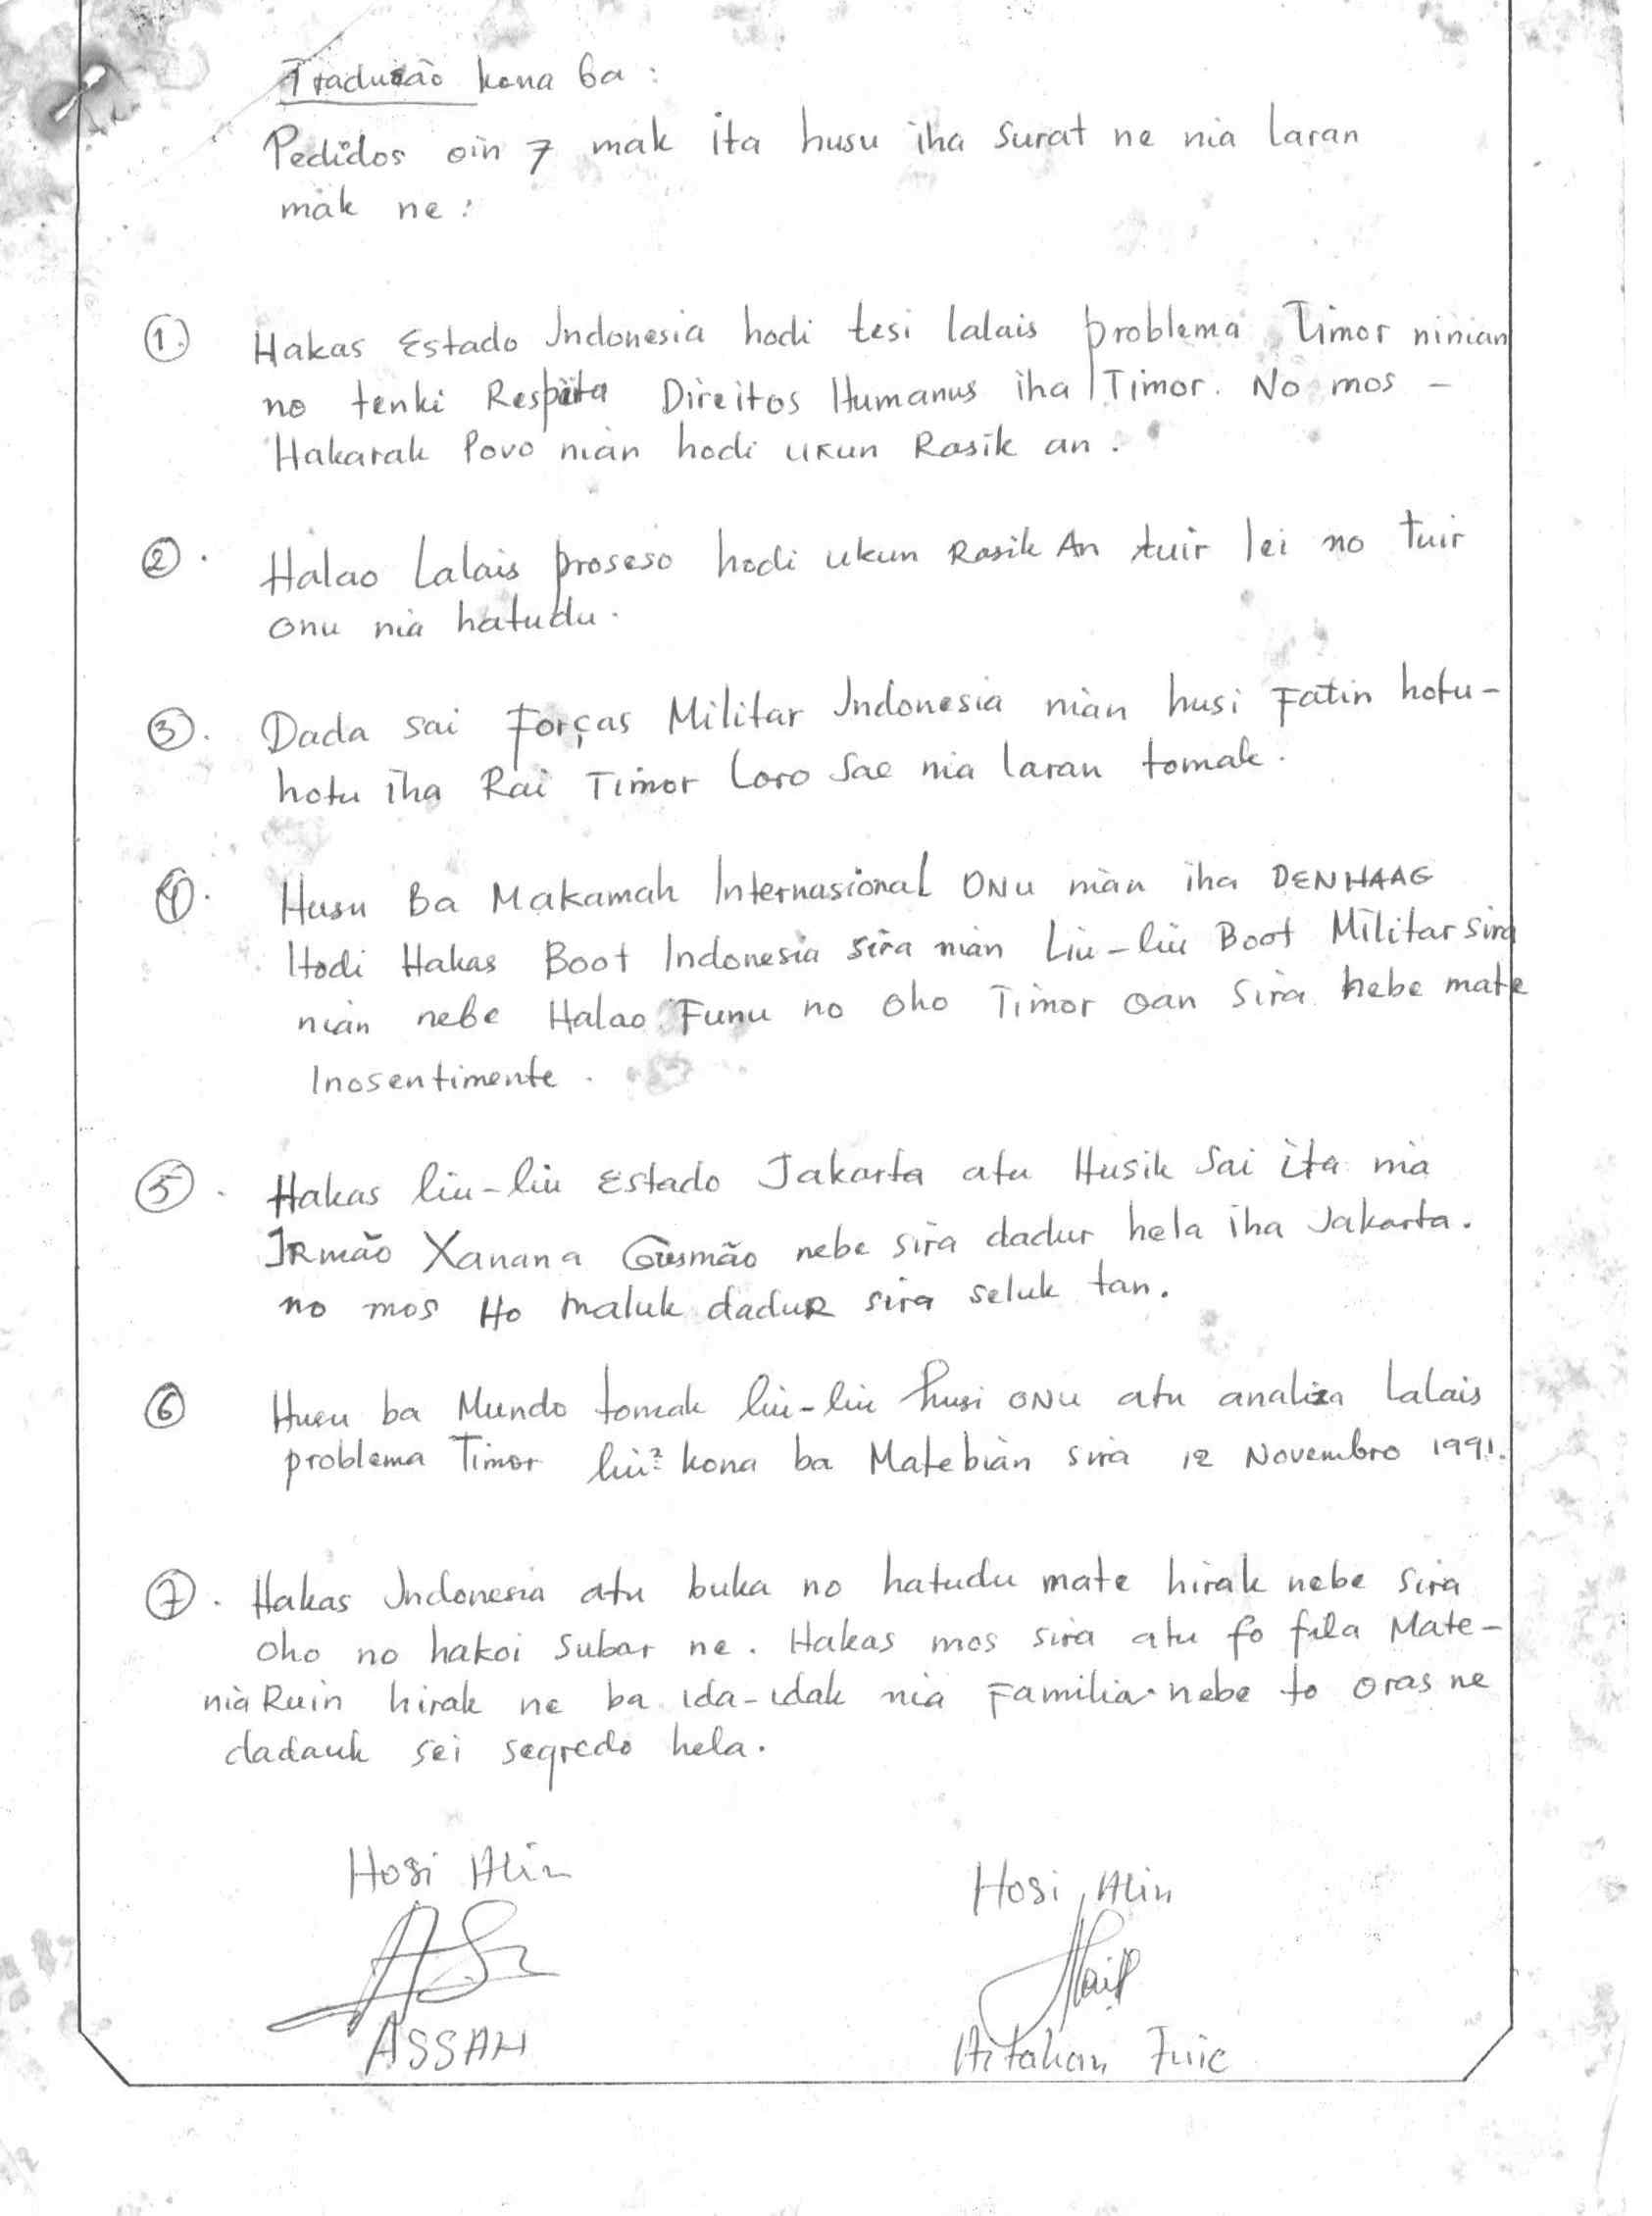 Tradução kona ba :
Pedidos oin 7 mak ita husu iha surat ne nia laran
mak ne :
1. Hakas Estado Indonesia hodi tesi lalais problema Timor ninian
no tenki Respeita Direitos Humanus iha Timor. No mos -
Hakarak Povo nian hodi ukun Rasik an.
2. Halao Lalais proseso hodi ukun Rasik An tuir lei no tuir
onu nia hatudu.
3. Dada sai Forças Militar Indonesia nian husi Fatin hotu-
hotu iha Rai Timor Loro Sae nia laran tomak.
4. Husu Ba Makamah Internasional ONU nian iha DENHAAG
Hodi Hakas Boot Indonesia sira nian Liu-liu Boot Militar sira
nian nebe Halao Funu no oho Timor oan sira nebe mate
Inosentimente.
5. Hakas liu-liu Estado Jakarta atu Husik Sai ita nia
IRmão Xanana Gusmão nebe sira dadur hela iha Jakarta.
no mos Ho maluk daduR sira seluk tan.
6 Husu ba Mundo tomak liu-liu husi ONU atu analiza lalais
problema Timor liu² kona ba Matebian sira 12 Novembro 1991.
7. Hakas Indonesia atu buka no hatudu mate hirak nebe sira
oho no hakoi subar ne. Hakas mos sira atu fo fila Mate-
nia Ruin hirak ne ba ida-idak nia Familia nebe to oras ne
dadauk sei segredo hela.
Hosi Alin
Hosi Alin
ASSAH
Aitahan